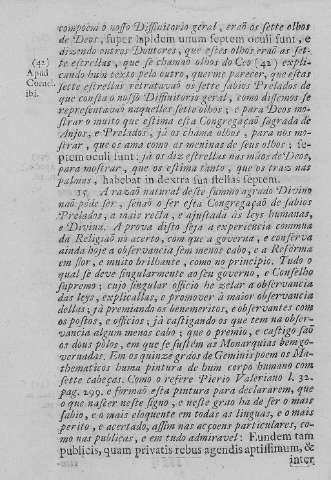 compoem o nosso Diffinitorio geral, eraõ os sette olhos
de Deos, super lapidem unum septem oculi sunt, e
dizendo outros Doutores, que estes olhos eraõ as set-
te estrellas, que se chamaõ olhos do Ceo (42) expli-
cando hum texto pelo outro, querme parecer, que estas
sette estrellas retrataçaõ os sette sabios Prelados de
que consta o nosso Diffinitorio geral, como dissemos se
representavaõ naquelles sette olhos; e para Deos mo-
strar o muito que estima esta Congregaçaõ sagrada de
Anjos, e Prelados, já os chama olhos, para nos mo-
strar, que os ama como as meninas de seus olhos; se-
ptem oculi sunt; já os diz estrellas nas mãos de Deos,
para mostrar, que os estima tanto, que os traz nas
palmas, habebat in dextra sua stellas septem.
15. A razaõ natural deste summo agrado Divino
naõ póde ser, senaõ o ser esta Congregaçaõ de sabios
Prelados, a mais recta, e ajustada ás leys humanas,
e Divinas. A prova disto seja a experiencia commua
da Religiaõ no acerto, com que a governa, e conserva
ainda hoje a observancia sem menos cabo, e a Refórma
em flor, e muito brilhante, como no principio. Tudo o
qual se deve singularmente ao seu governo, e Conselho
supremo; cujo singular officio he zelar a observancia
das leys, explicallas, e promover á maior observancia
dellas; já premiando os benemeritos, e observantes com
os postos, e officios, já castigando os que tem na obser-
vancia algum menos cabo; que o premio, e castigo saõ
os dous pólos, em que se sustem as Monarquias bem go-
vernadas. Em os quinze gráos de Geminis poem os Ma-
thematicos huma pintura de hum corpo humano com
sette cabeças. Como o refere Pierio Valeriano l. 32.
pag. 299. e formaõ esta pintura para declararem, que
o que nascer neste signo, e neste gráo ha de ser o mais
sabio, e o mais eloquente em todas as linguas, e o mais
perito, e acertado, assim nas acçoens particulares, co-
mo nas publicas, e em tudo admiravel: Eundem tam
publicis, quam privatis rebus agendis aptissimum, &
inter
(42)
Apud
ibi.